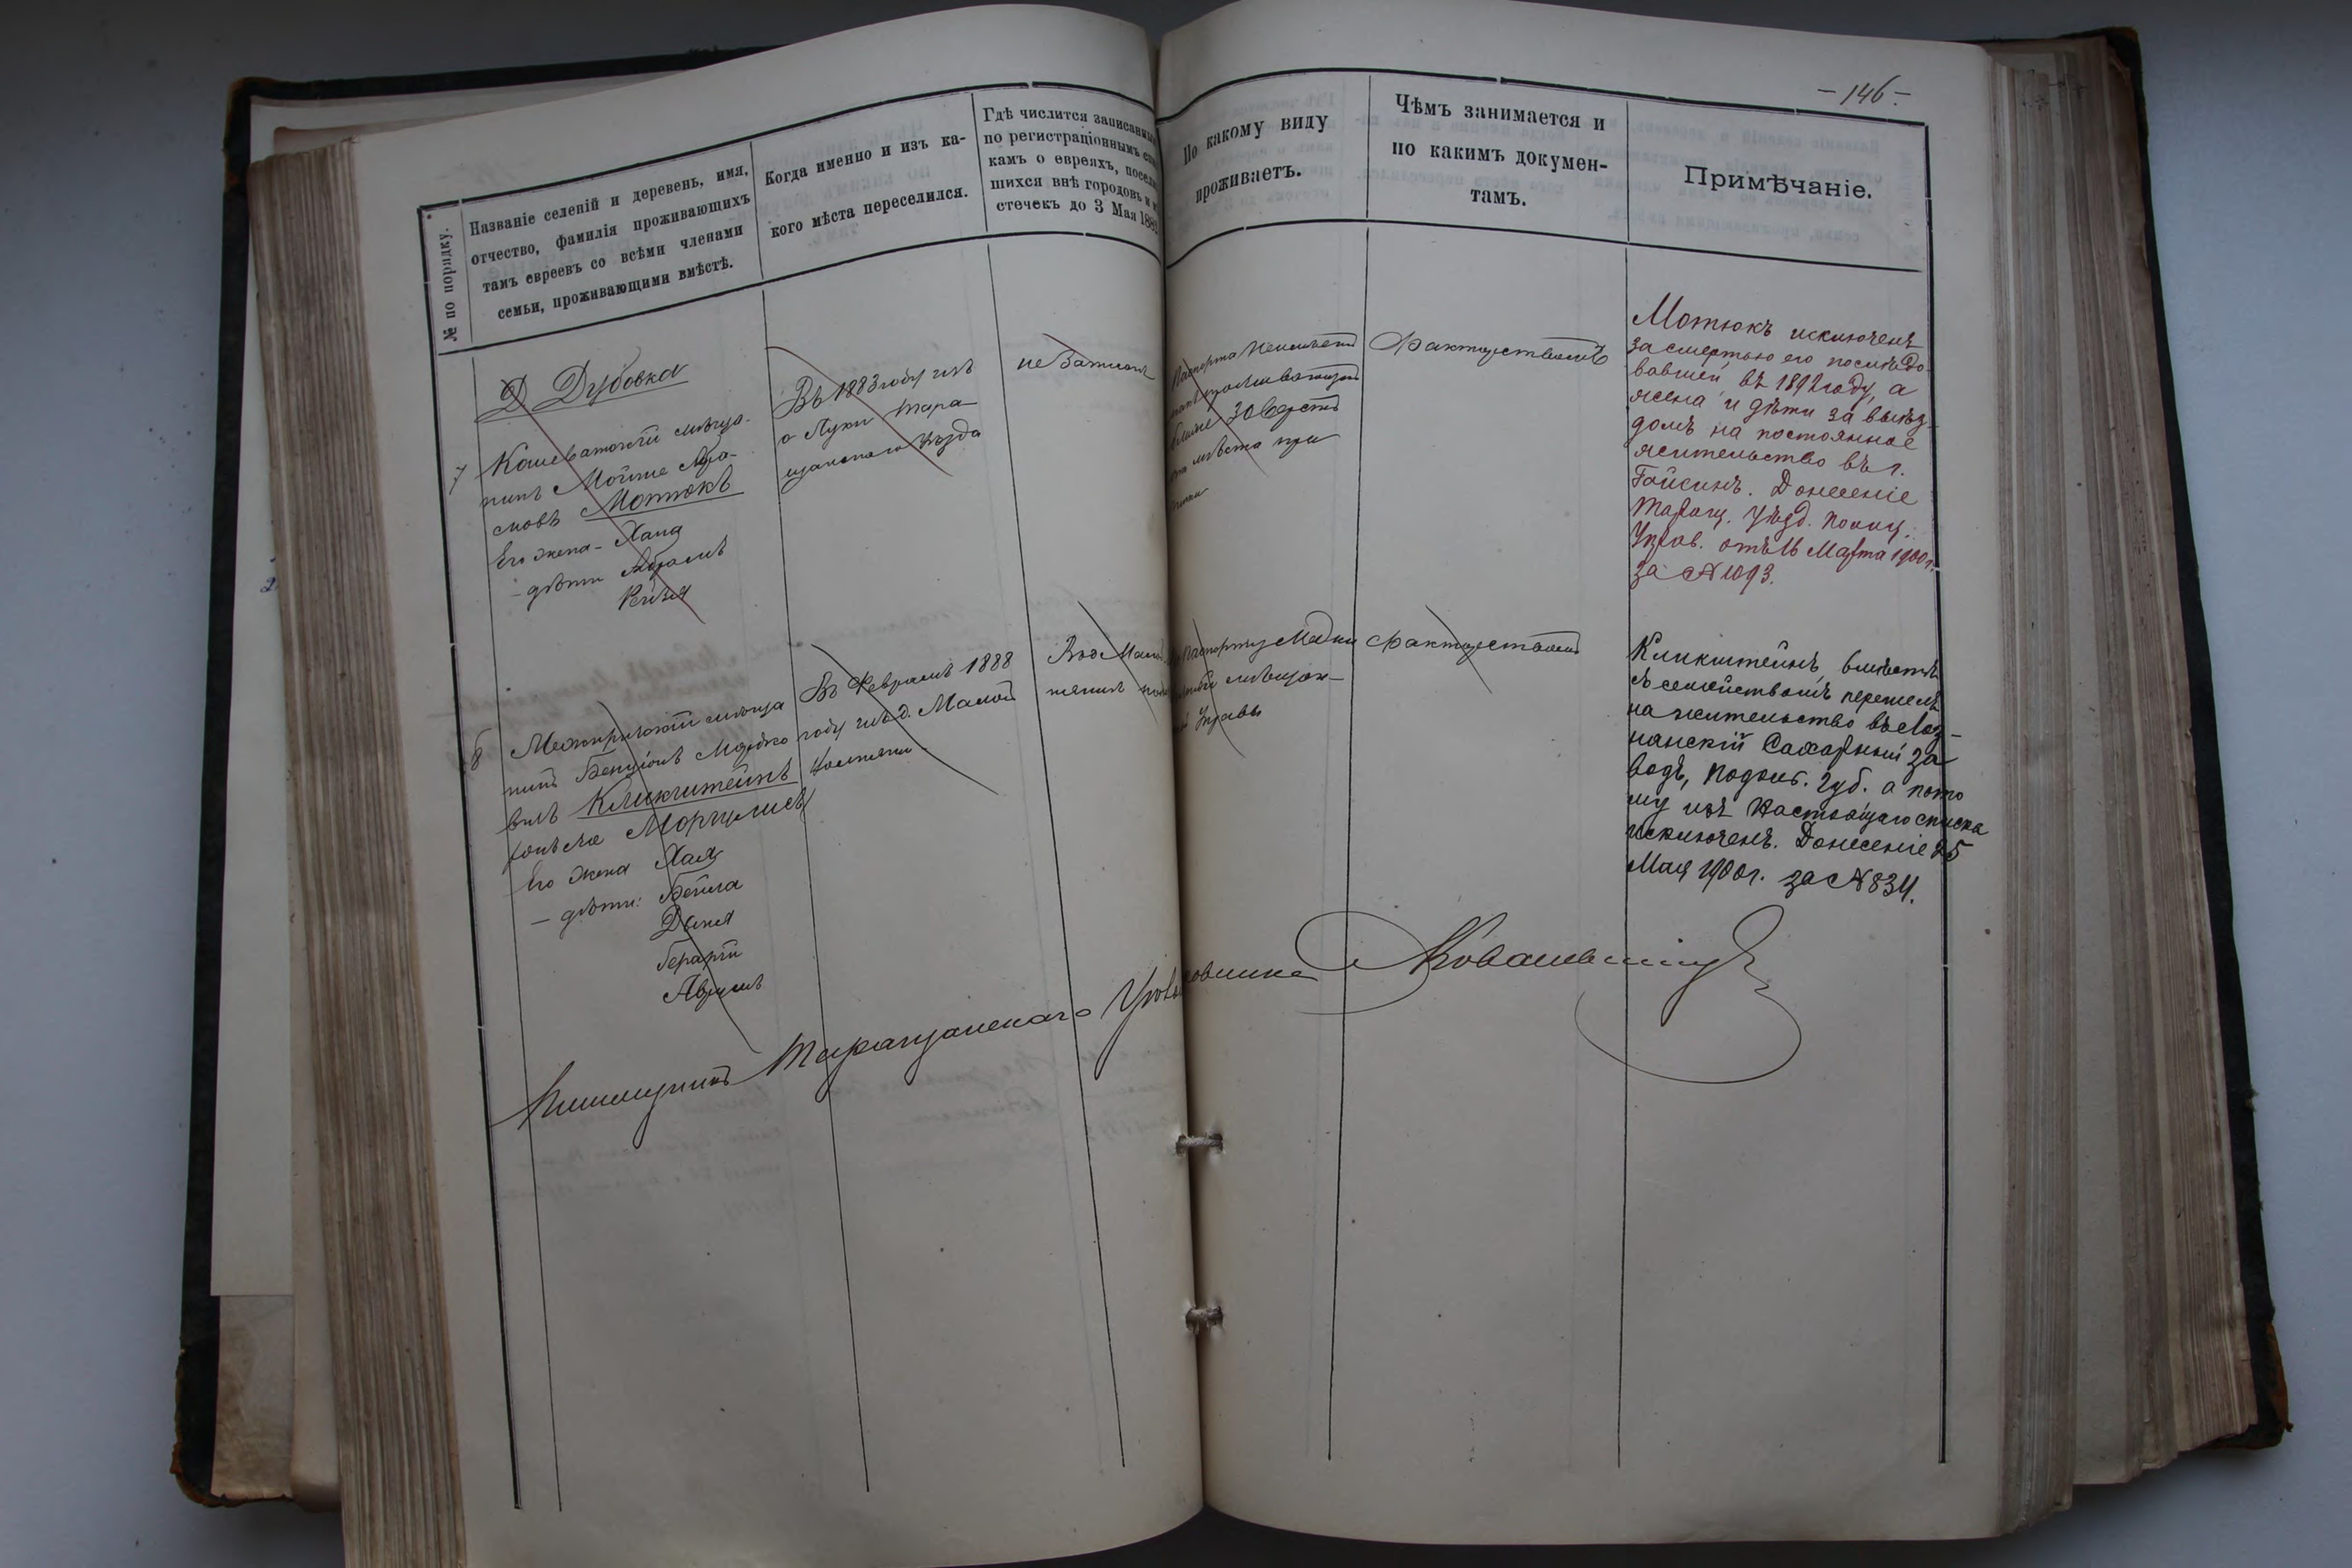 -146-
№ по порядку.
Названіе селеній и деревень, имя,
отчество, фамилія проживающихъ
тамъ евреевъ со всѣми членами
семьи, проживающими вмѣстѣ.
Когда именно и изъ ка-
кого мѣста переселился.
Гдѣ числится записаннымъ
по регистраціоннымъ
камъ о евреяхъ, посел
шихся внѣ городовъ и
стечекъ до 3 Мая 188
По какому виду
проживаетъ.
Чѣмъ занимается и
по какимъ докумен-
тамъ.
Примѣчаніе.
Д Дубовка
7 Кошеватскій мѣща-
нинъ Мойше Абра-
мовъ Мотюкъ
Его жена - Хана
- дѣти Абрамъ
Рейзя
Въ 1883 году изъ
с Луки Тара
щанскаго Уѣзда
не Записанъ
Паспорта
30 верстъ
мѣста при
Факторствомъ
Мотюкъ исключенъ
за смертью его послѣдо
вавшей въ 1892 году, а
жена и дѣти за выѣз-
домъ на постоянное
жительство въ г.
Гайсинъ. Донесеніе
Таращ. Уѣзд. Полиц.
Управ. отъ 16 Марта 1900 г.
за № 1093.
8 Межирицкій мѣща
нинъ Бенціонъ Мордко
вичъ Кликштейнъ
онъ же Моргулисъ
Его жена Хая
- дѣти: Бейла
Двися
Гершъ
Аврумъ
Въ Февралѣ 1888
году изъ д. Малой
Въ д Мал
Паспорту
мѣщан-
Управы
Факторствомъ
Кликштейнъ, вмѣстѣ
съ семействомъ перешелъ
на жительство въ
нанскій Сахарный За
водъ, Подольс. Губ. а пото
му изъ настоящаго списка
исключенъ. Донесеніе 25
Мая 1900 г. за № 834.
Помощникъ Таращанскаго Исправника